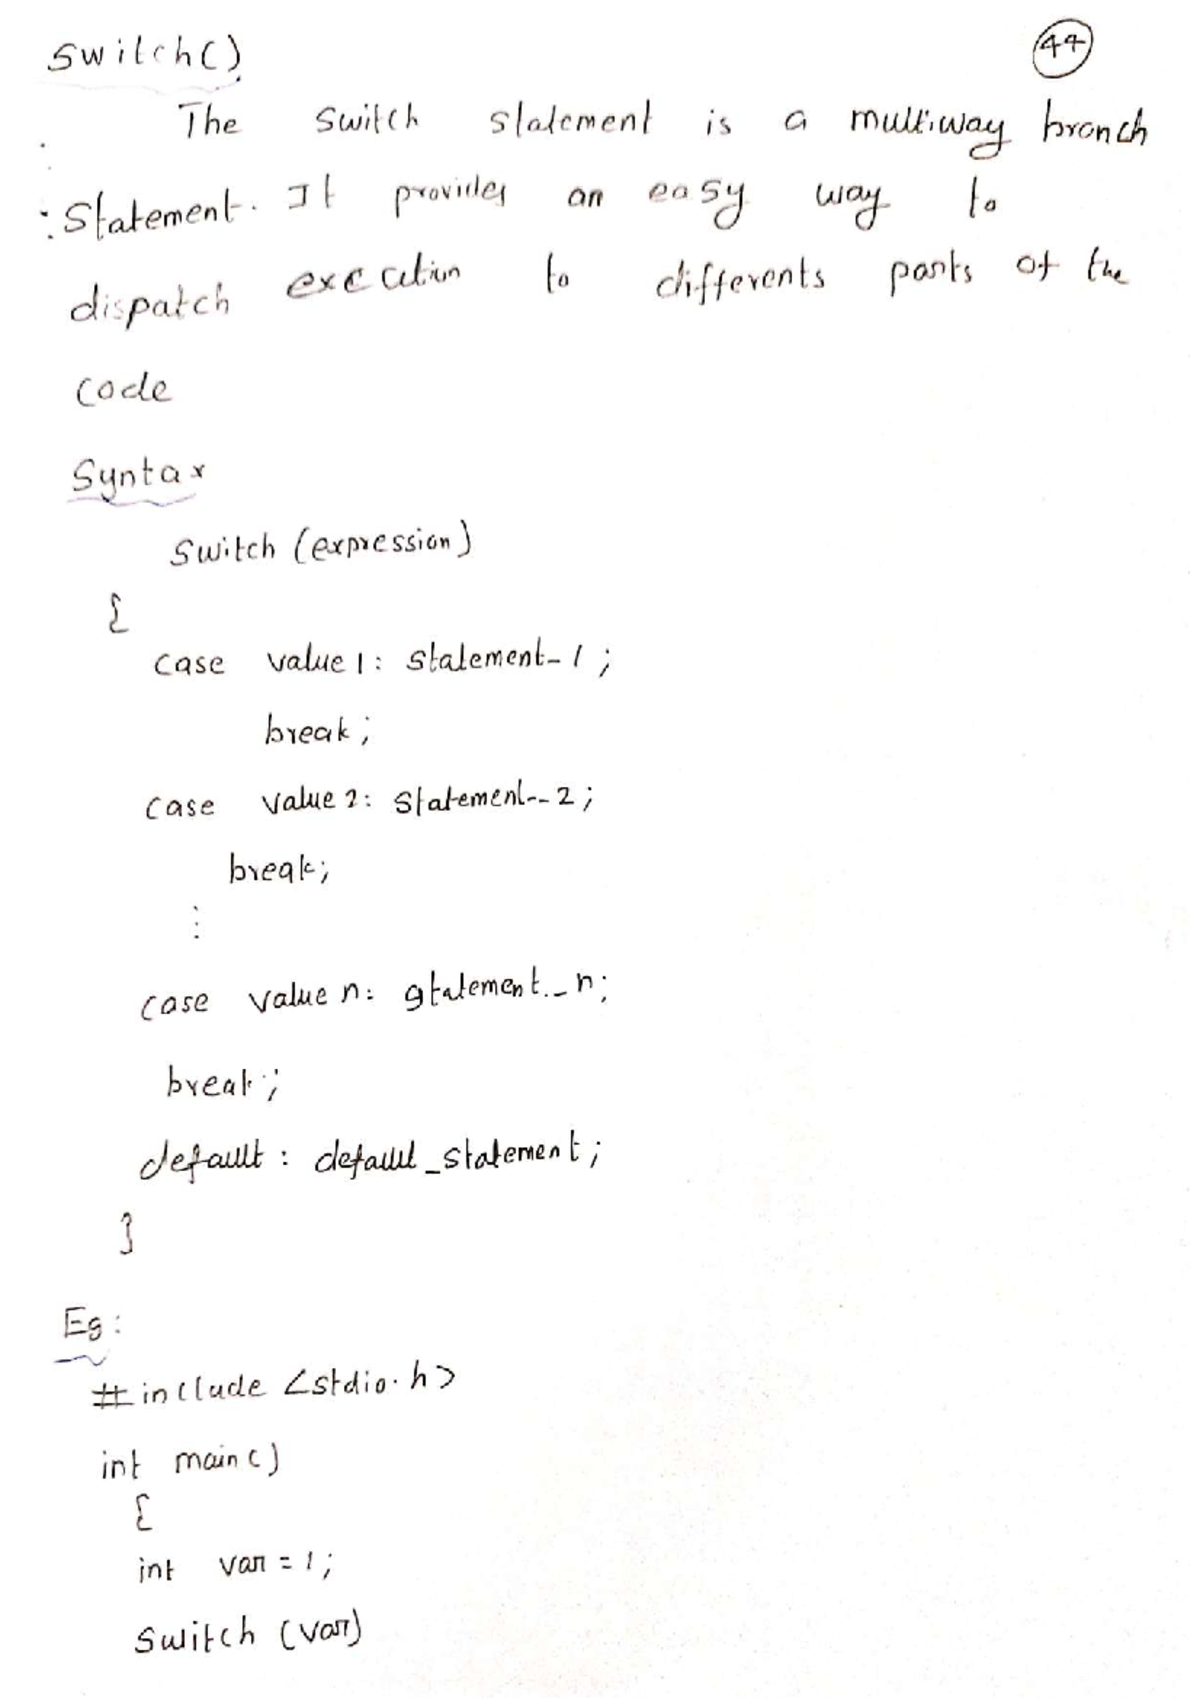 Switch() 44
The Switch statement is a multiway branch
Statement. It provides an easy way to
dispatch execution to differents parts of the
code
Syntax
Switch (expression)
{
case value 1: statement_1;
break;
case value 2: statement_2;
break;
⋮
case value n: statement_n;
break;
default: default_statement;
}
Eg:
#include <stdio.h>
int main()
{
int var = 1;
Switch (var)